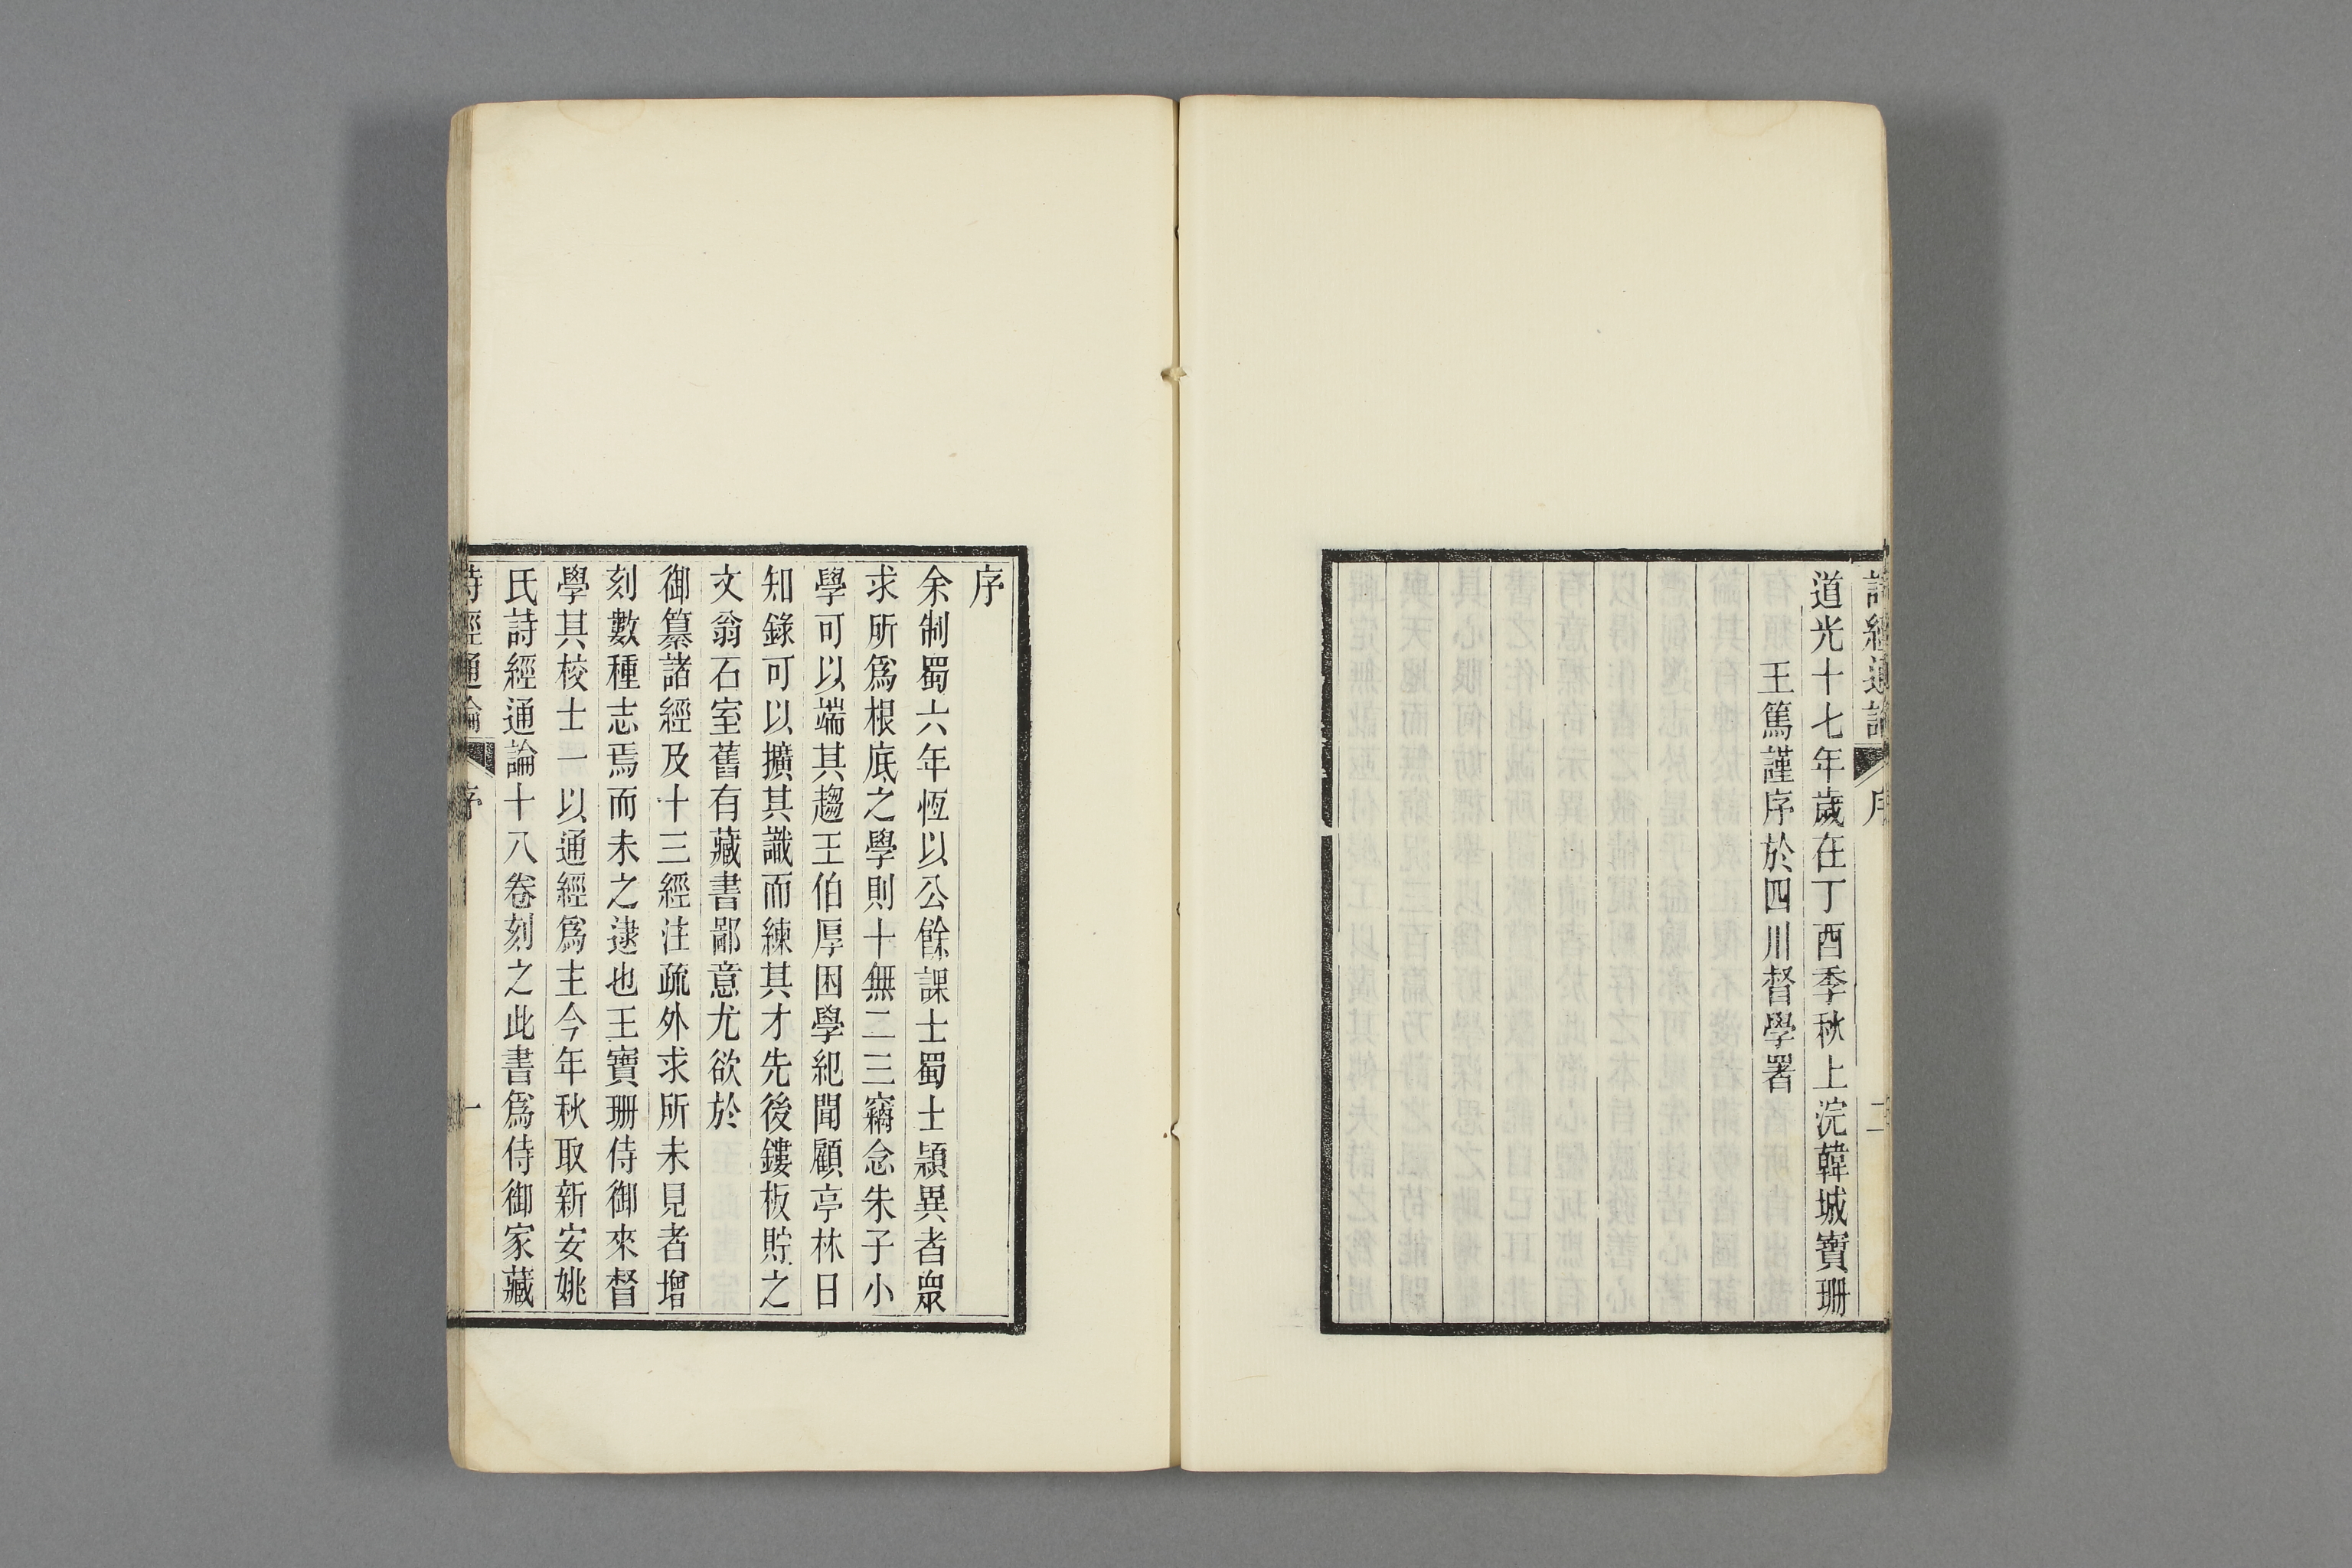 詩經通論 序 二
道光十七年歲在丁酉季秋上浣韓城寶珊
王篤謹序於四川督學署
序
余制蜀六年恆以公餘課士蜀士頴異者衆
求所爲根底之學則十無二三竊念朱子小
學可以端其趨王伯厚困學紀聞顧亭林日
知錄可以擴其識而練其才先後鏤板貯之
文翁石室舊有藏書鄙意尤欲於
御纂諸經及十三經注疏外求所未見者增
刻數種志焉而未之逮也王寶珊侍御來督
學其校士一以通經爲主今年秋取新安姚
氏詩經通論十八卷刻之此書爲侍御家藏
詩經通論 序 一